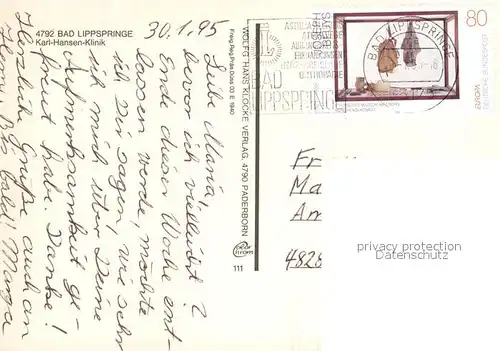 4792 BAD LIPPSPRINGE
Karl-Hansen-Klinik
30.1.95
Liebe Maria,
bevor ich vielleicht?
Ende dieser Woche ent-
lassen werde, möchte
ich dir sagen, wie sehr
ich mich über Deine
Aufmerksamkeit ge-
freut habe. Danke!
Herzliche Grüße auch an
Bis bald! Marga
WOLFG. HANS KLOCKE VERLAG, 4790 PADERBORN
Freig. Reg. Präs. Dübs 03 E 1940
111
BAD
LIPPSPRINGE
BAD LIPPSPRINGE
80
DEUTSCHE BUNDESPOST
Fr
Ma
Am
4828
privacy protection
Datenschutz